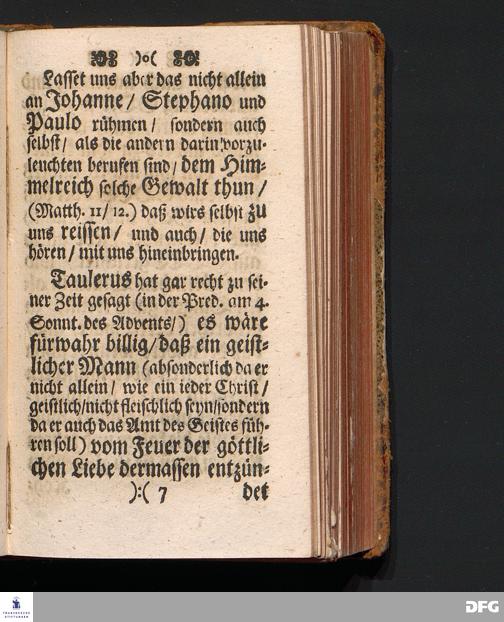 )o(
Lasset uns aber das nicht allein
an Johanne/ Stephano und
Paulo rühmen/ sondern auch
selbst/ als die andern darin vorzu-
leuchten berufen sind/ dem Him-
melreich solche Gewalt thun/
(Matth. 11/12.) daß wirs selbst zu
uns reissen/ und auch/ die uns
hören/ mit uns hineinbringen.
Taulerus hat gar recht zu sei-
ner Zeit gesagt (in der Pred. am 4.
Sonnt. des Advents/) es wäre
fürwahr billig/ daß ein geist-
licher Mann (absonderlich da er
nicht allein/ wie ein ieder Christ/
geistlich/ nicht fleischlich seyn/ sondern
da er auch das Amt des Geistes füh-
ren soll) vom Feuer der göttli-
chen Liebe dermassen entzün-
):( 7 det
FRANCKESCHE STIFTUNGEN
DFG